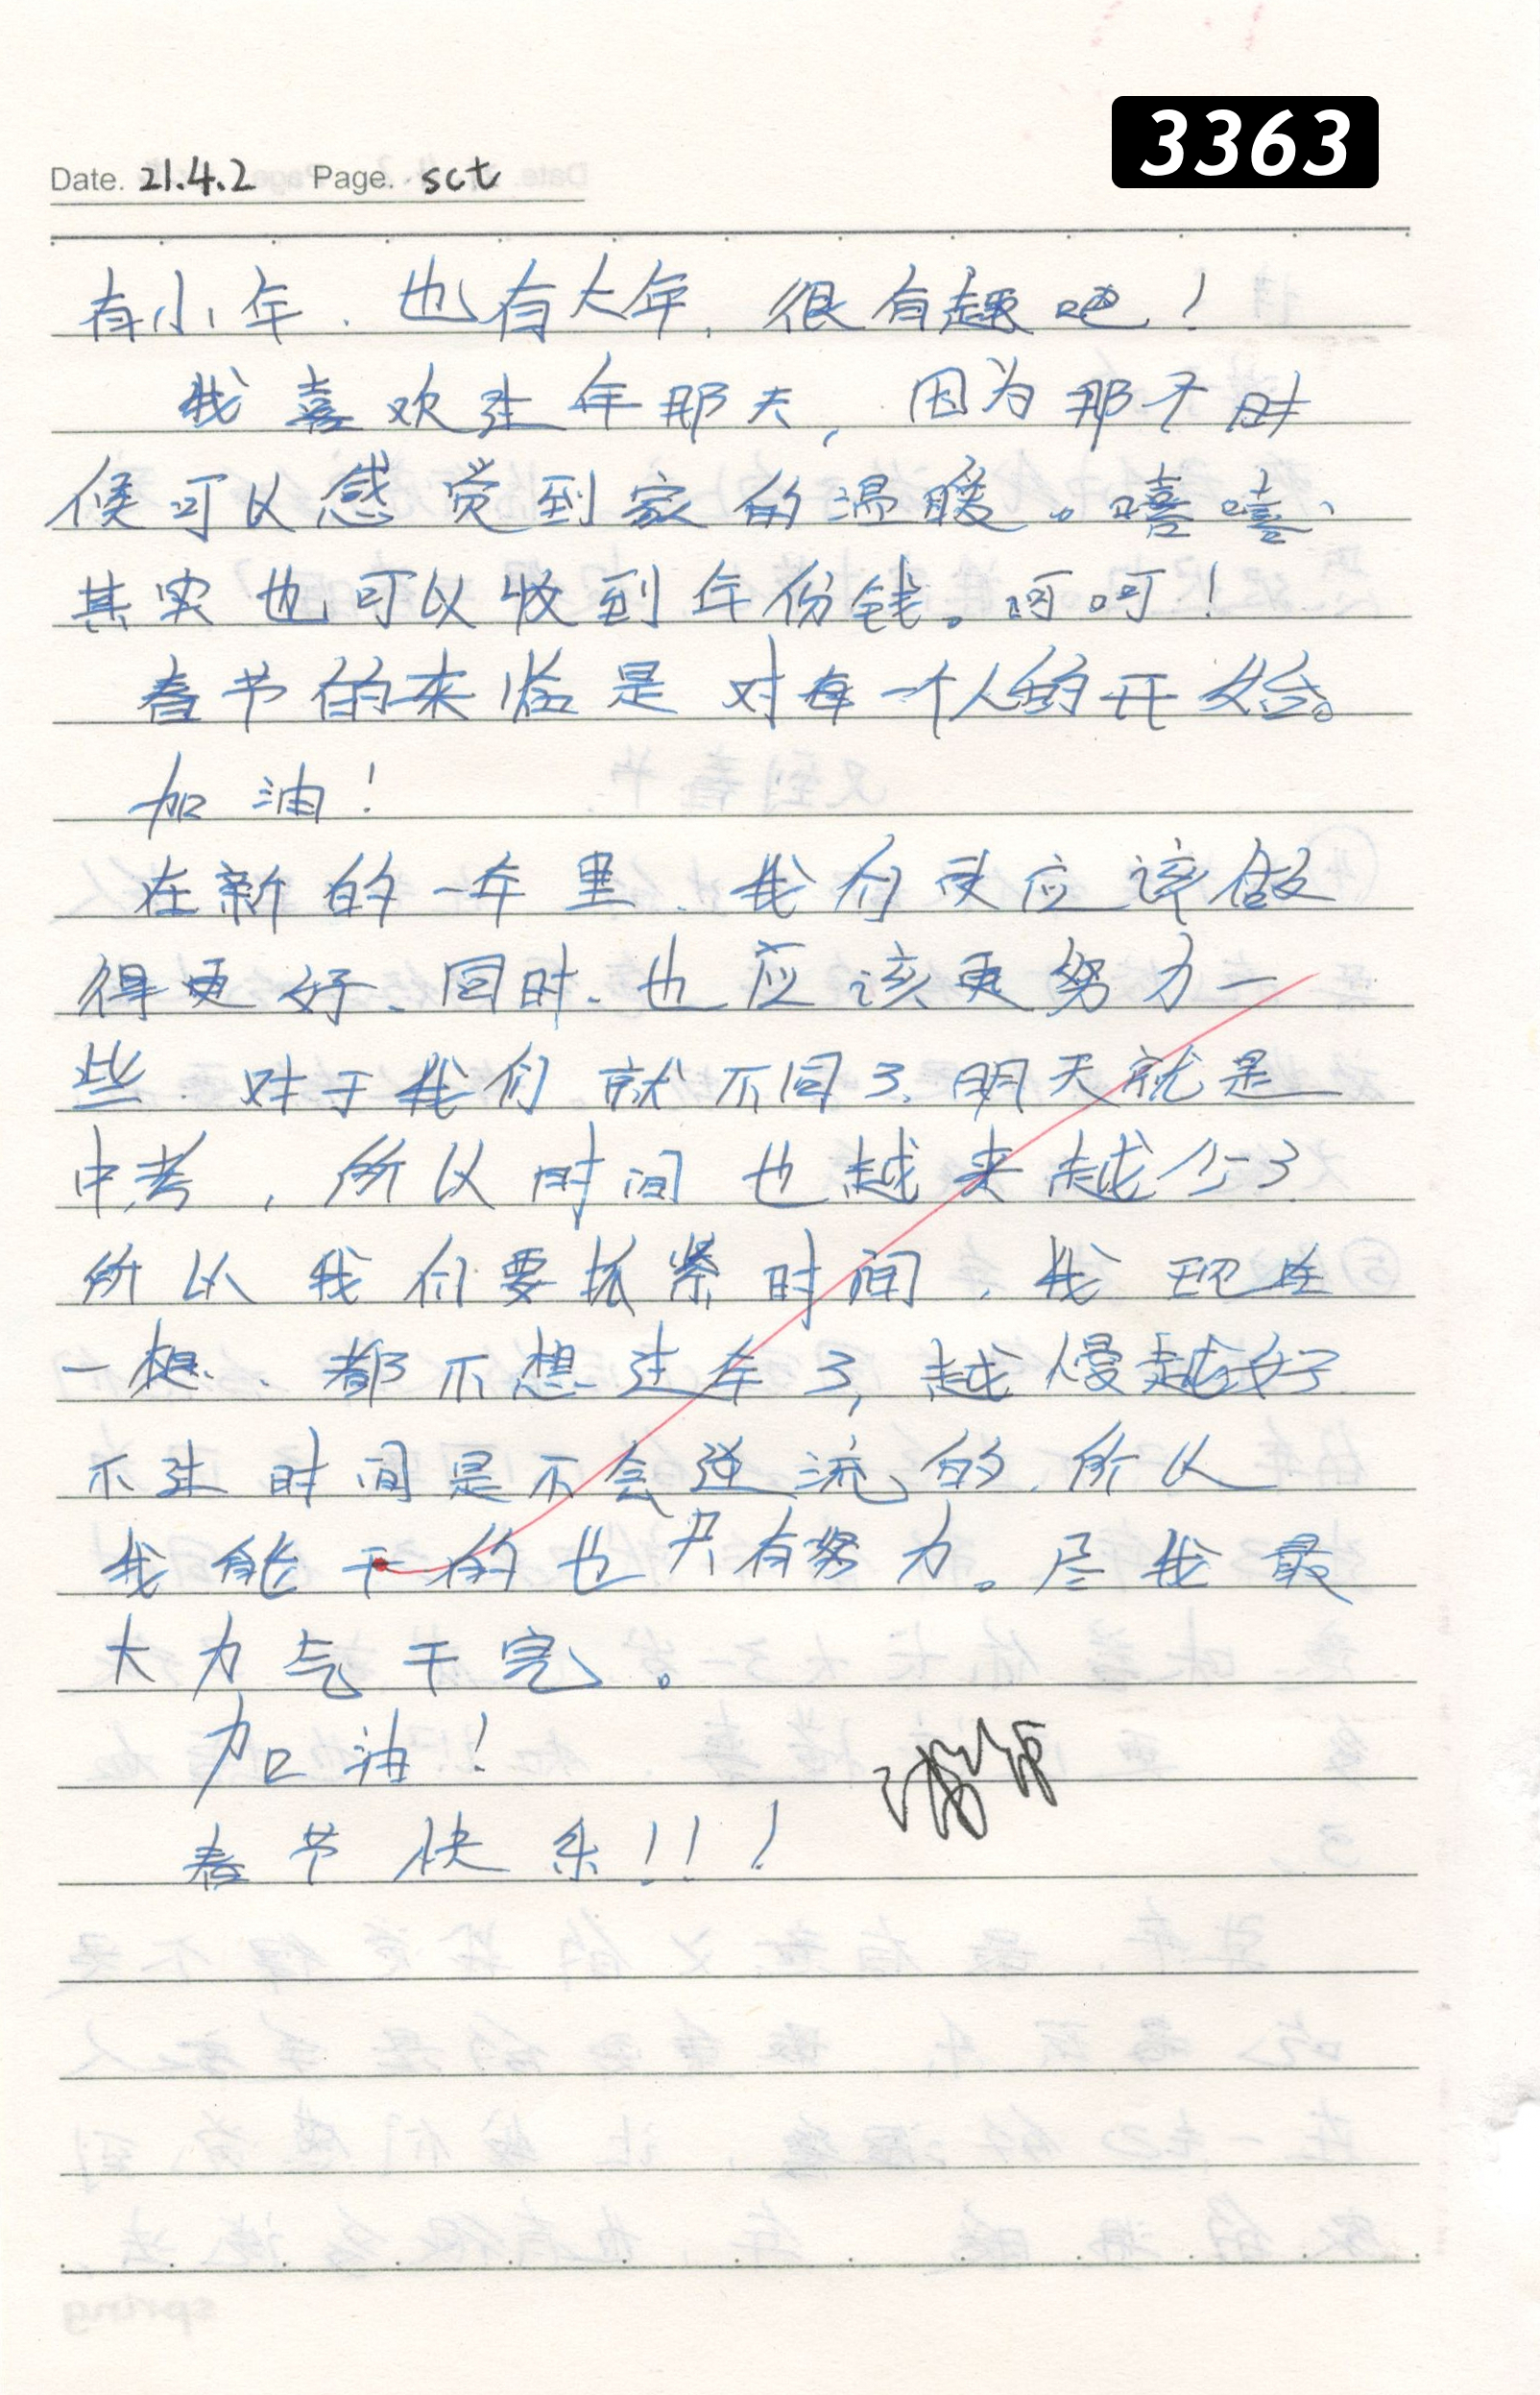 3363
Date. 21.4.2 Page. sct
有小年、也有大年，很有趣吧！
我喜欢过年那天，因为那个时
候可以感觉到家的温暖。嘻嘻、
其实也可以收到年份钱。呵呵！
春节的来临是对每一个人的开始。
加油！
在新的一年里、我们更应该做
得更好、同时、也应该更努力一
些、对于我们就不同了、明天就是
中考，所以时间也越来越少了
所以我们要抓紧时间，我现在
一想、都不想过年了，越慢越好
不过时间是不会逆流的、所以
我能干的也只有努力。尽我最
大力气干完。
加油！
春节快乐！！！